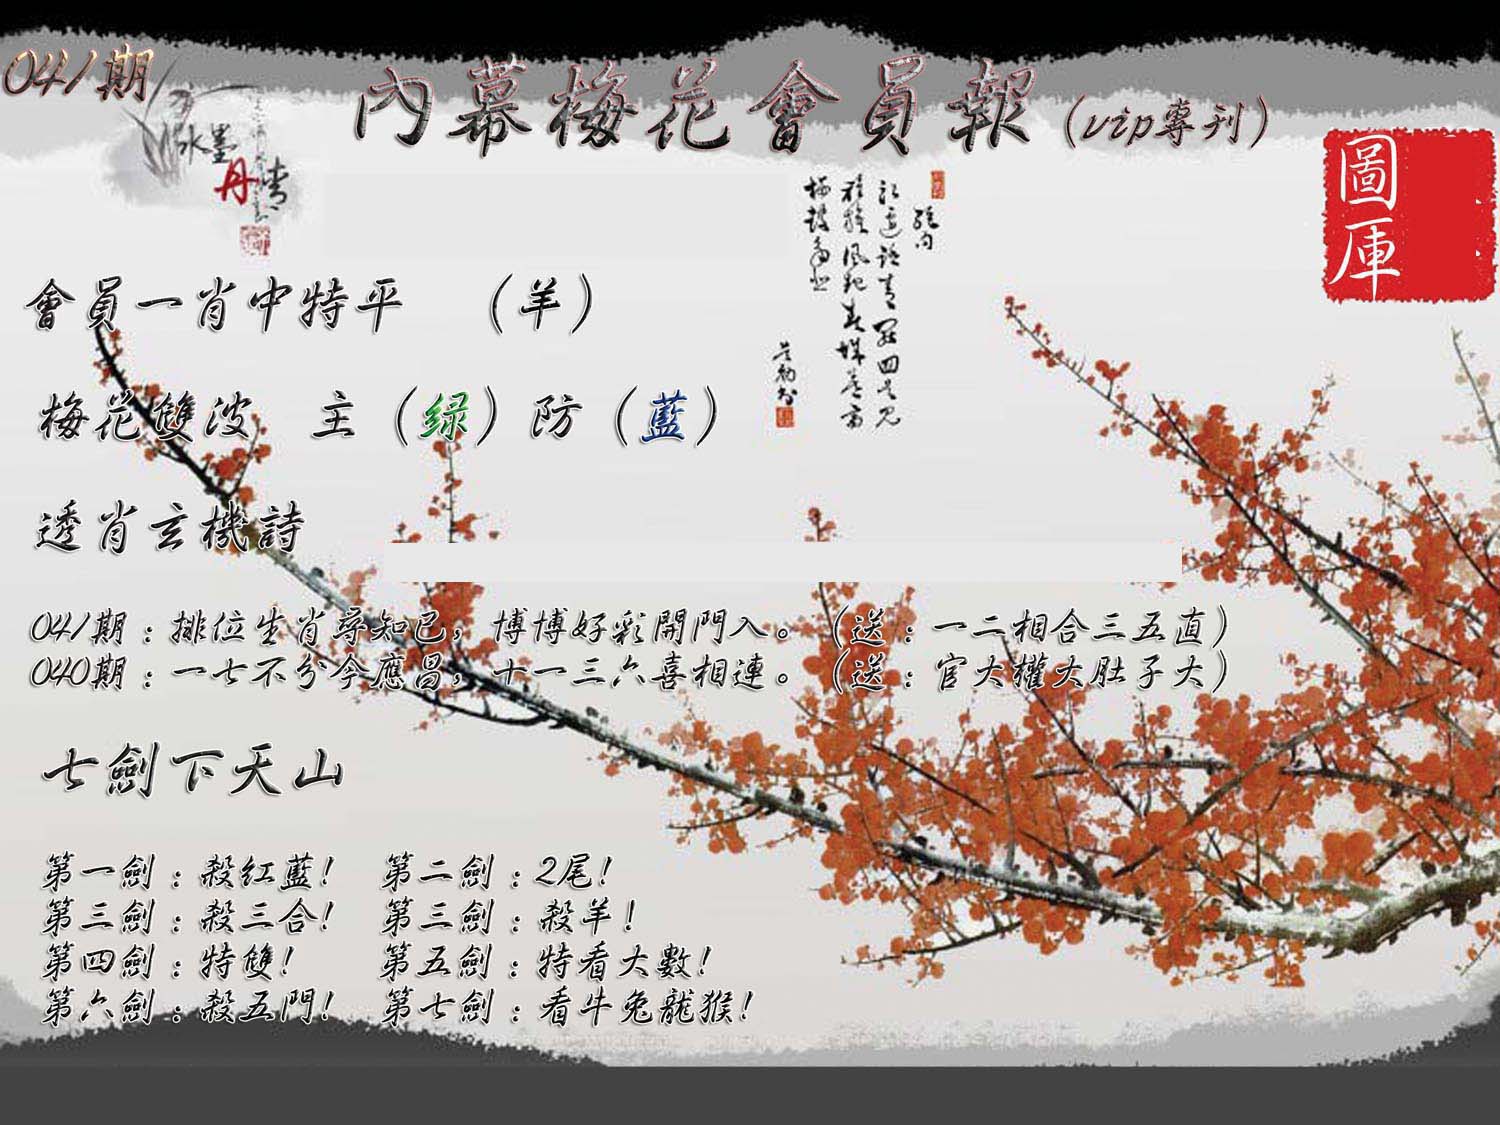 041期
內幕梅花會員報(vip專刊)
圖庫
水墨
丹青
會員一肖中特平 (羊)
梅花雙波 主(綠)防(藍)
透肖玄機詩
041期:排位生肖尋知已,博博好彩開門入。(送:一二相合三五直)
040期:一七不分今應昌,十一三六喜相連。(送:官大權大肚子大)
七劍下天山
第一劍:殺紅藍! 第二劍:2尾!
第三劍:殺三合! 第三劍:殺羊!
第四劍:特雙! 第五劍:特看大數!
第六劍:殺五門! 第七劍:看牛兔龍猴!